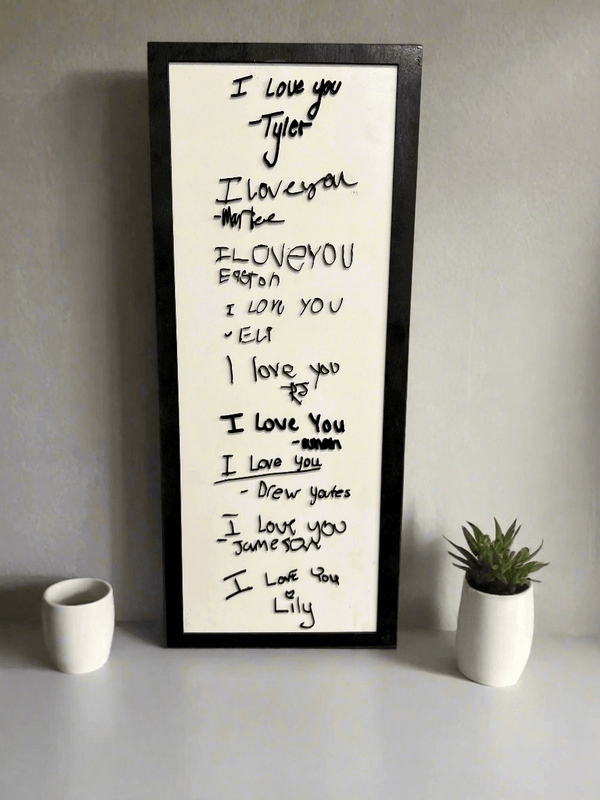 I love you
-Tyler
I love you
I LOVE YOU
Easton
I love YOU
-Eli
I love you
RJ
I love You
I love You
- Drew Yates
I love you
-Jameson
I Love You
Lily